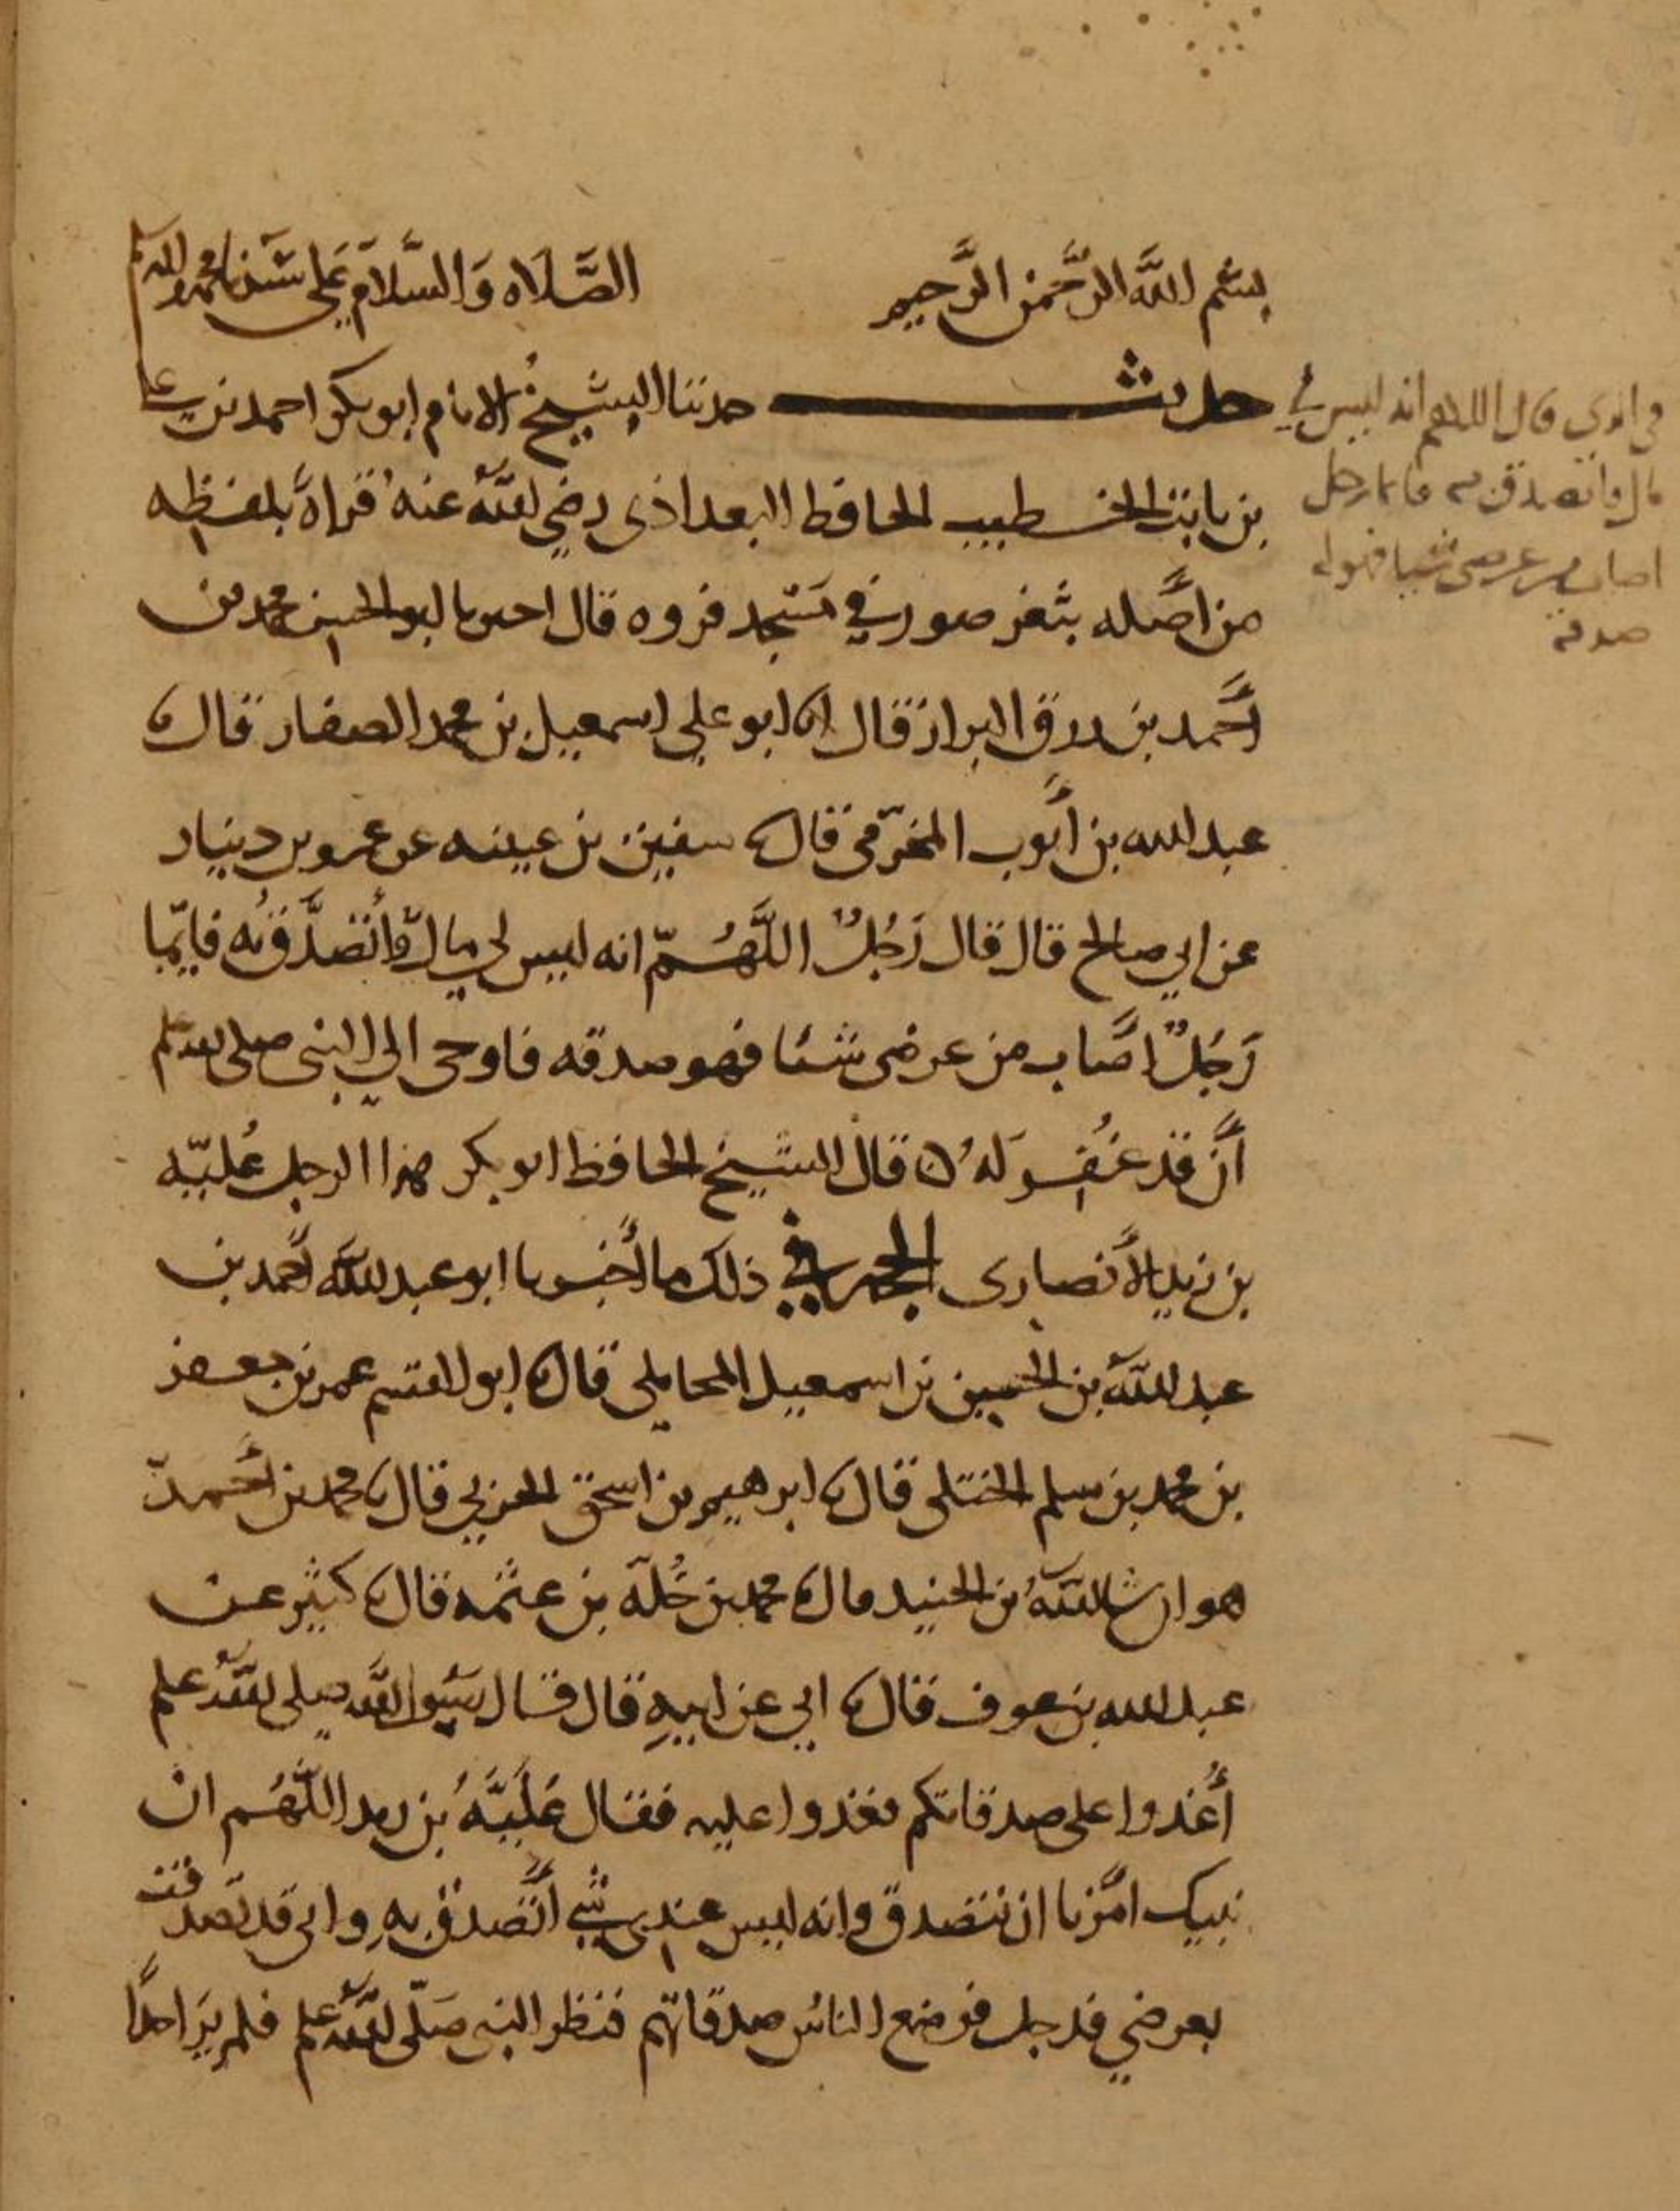 بسم الله الرحمن الرحيم الصلاه والسلام على سيدنا محمد واله
حديث حدثنا الشيخ الامام ابو بكر احمد بن علي
بن ثابت الخطيب الحافظ البغداذي رضي الله عنه قراةً بلفظه
من اصله بثغر صور في مسجد فروه قال اخبرنا ابو الحسن محمد بن
أحمد بن رزق البزاز قال انا ابو علي اسمعيل بن محمد الصفار قال ثنا
عبد الله بن أيوب المخرّمي قال ثنا سفين بن عيينه عن عمرو بن دينار
عن ابي صالح قال قال رَجُلٌ اللَّهُمّ انه ليس لي مالٌ فأتصدَّقُ به فايّما
رَجُلٌ اصاب من عرضي شئا فهو صدقه فاوحى الي النبي صلى الله علم
أن قد غُفِر لهُ ٥ قال الشيخ الحافظ ابو بكر هذا الرجل عُلبَّه
بن زيد الأنصاري الحجه في ذلك ما أخبرنا ابو عبد الله أحمد بن
عبد الله بن الحسين بن اسمعيل المحاملي قال ثنا ابو القسم عمر بن جعفر
بن محمد بن سلم الختلي قال ثنا ابرهيم بن اسحق الحربي قال ثنا محمد بن أحمد
هو ان شا الله بن الجنيد قال ثنا محمد بن خلد بن عثمه قال ثنا كثير عن
عبد الله بن عوف قال ثنا ابي عن ابيهِ قال قال رسول الله صلى الله علم
أُغدوا على صدقاتكم فغدوا عليه فقال عُلَبَّهُ بن زيد اللَّهُم ان
نبيك امرنا ان نتصدق وانه ليس عندي شي أتصدق بهِ واني قد تصدقت
بعرضي قد جل فوضع الناس صدقاتهم فنظر النبي صلّى الله علم فلم يَرَ احدًا
قال اللهم انه ليس لي
مال فاتصدق به فايما رجل
اصاب من عرضي شيا فهو له
صدقه